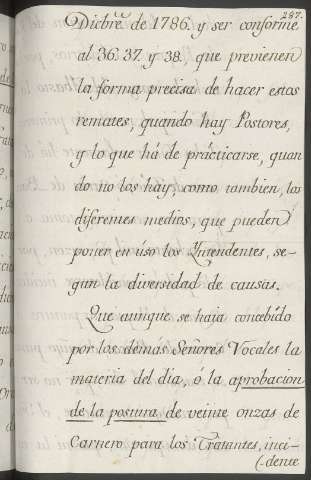 287.
Dicbrẽ. de 1786. y ser conforme
al 36. 37. y 38. que previenen
la forma precisa de hacer estos
remates, quando hay Postores,
y lo que há de prácticarse, quan
do no los hay, como tambien, los
diferentes medios, que pueden
poner en úso los Yntendentes, se-
gun la diversidad de causas.
Que aunque se haia concebido
por los demás Señores Vocales la
materia del dia, ó la aprobacion
de la postura de veinte onzas de
Carnero para los Tratantes, inci-
dente